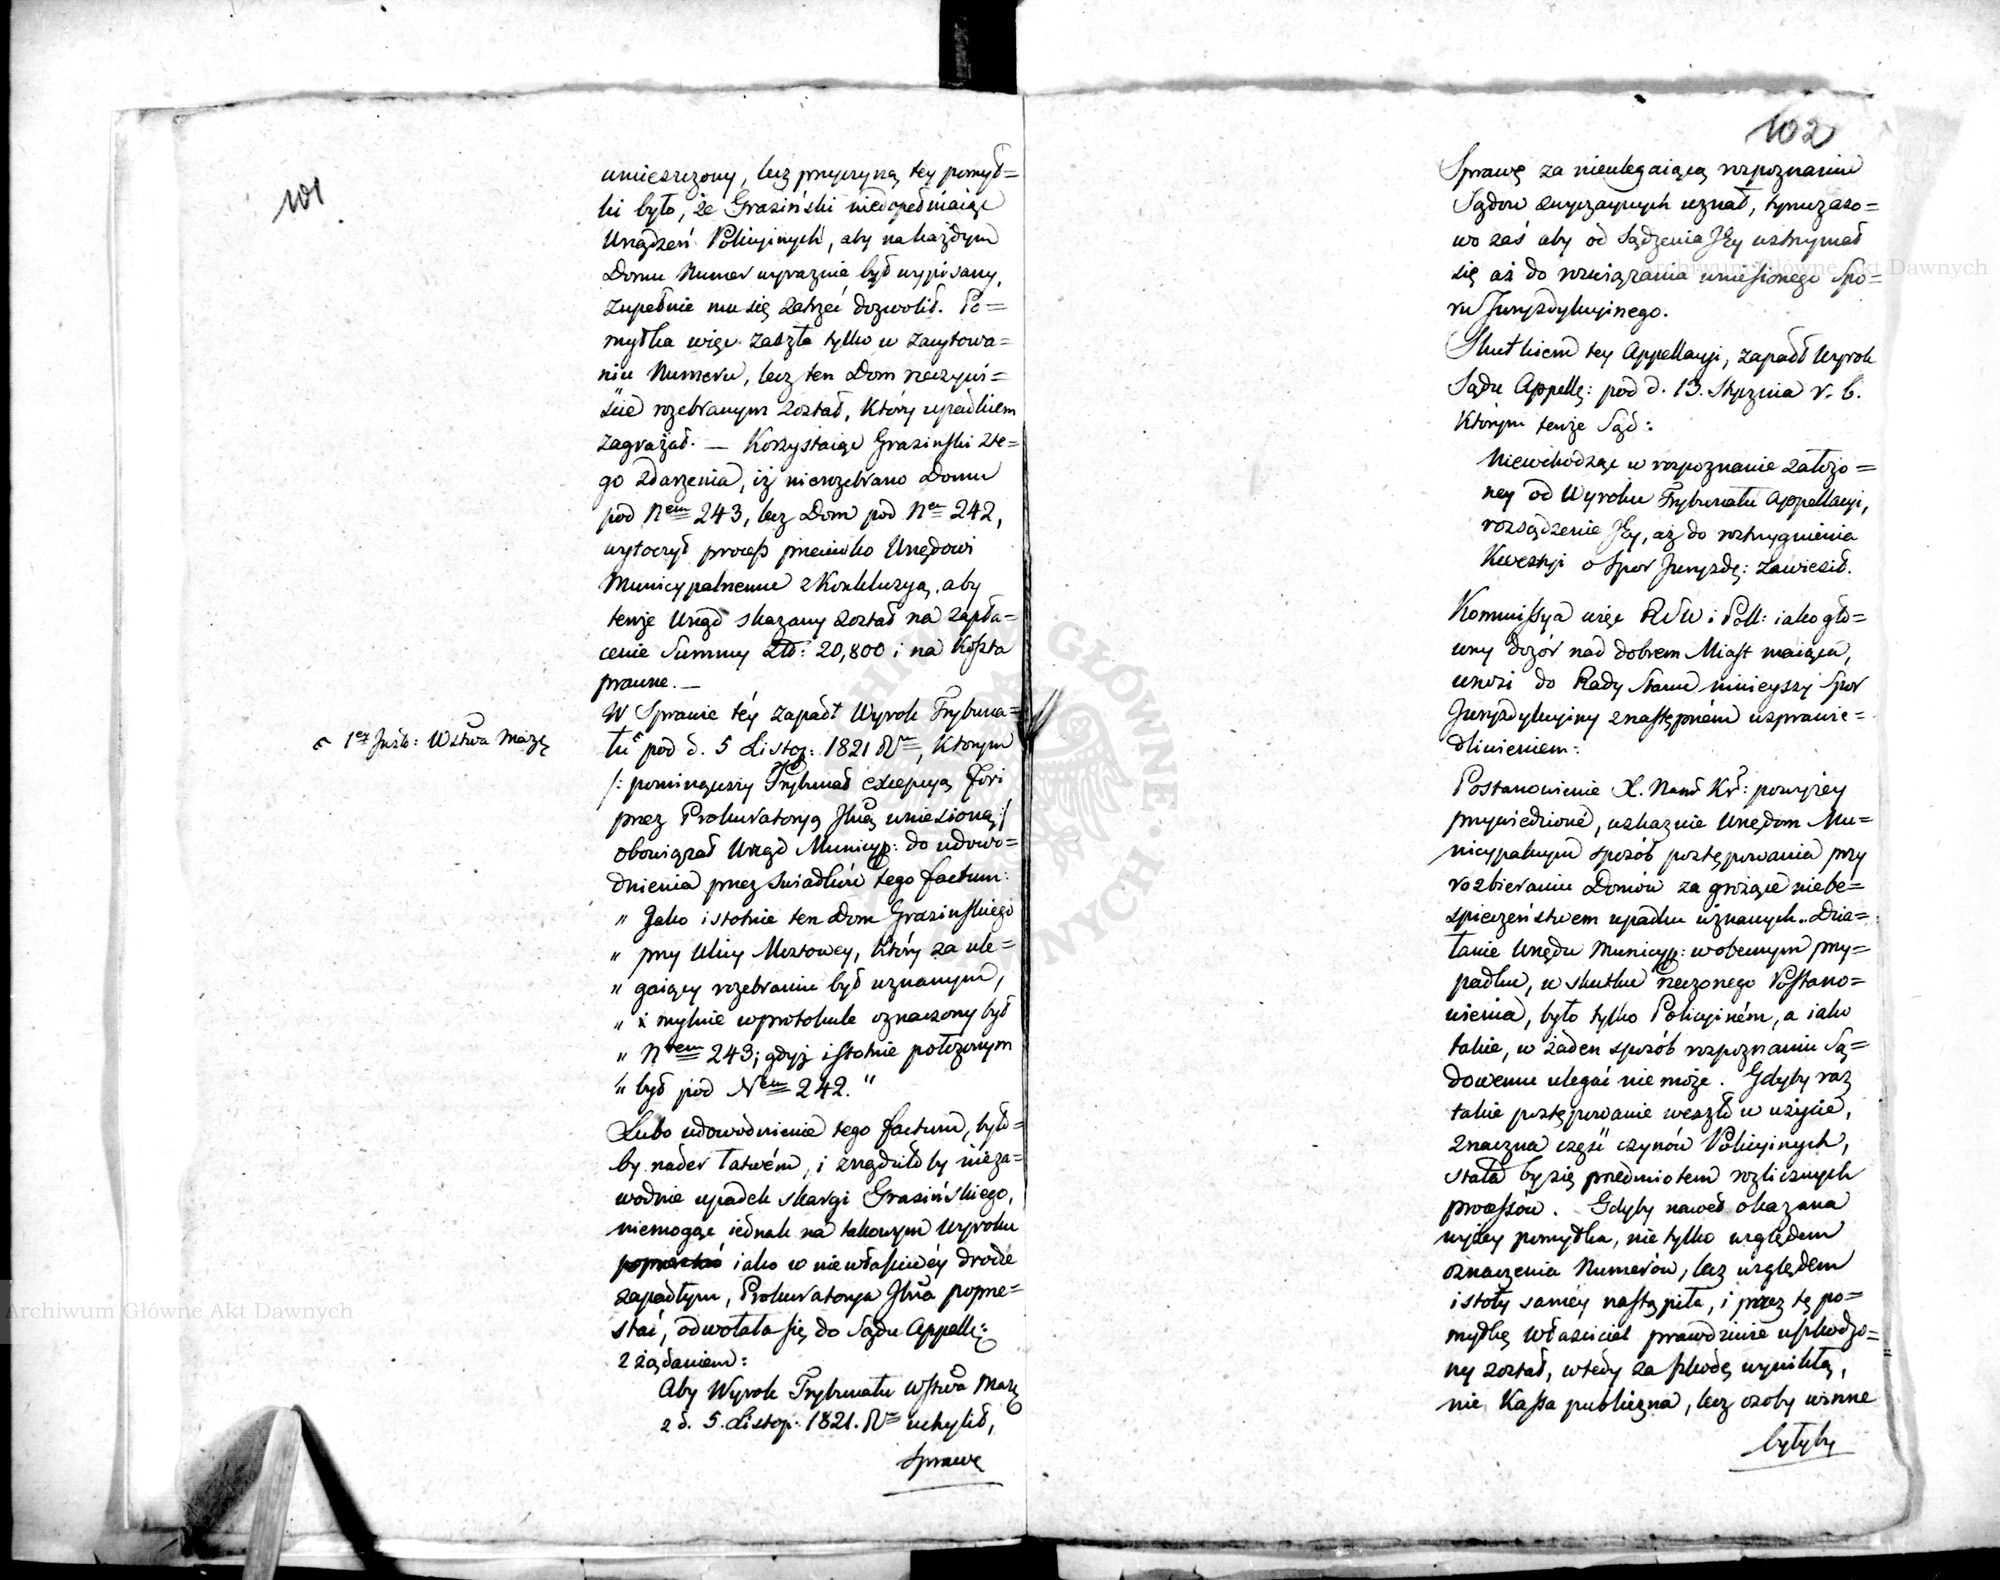 101
umieszczony, lecz przyczyną tey pomył=
ki było, że Grasiński niedopełniaiąc
Urządzeń Policyinych, aby na każdym
Domu Numer wyraznie był wypisany,
zupełnie mu się zatrzeć dozwolił. Po=
myłka więc zaszła tylko w zacytowa=
niu Numeru, lecz ten Dom rzeczywi=
ście rozebranym został, który upadkiem
zagrażał. — Korzystaiąc Grasinski z te=
go zdarzenia, iż nierozebrano Domu
pod Nem 243, lecz Dom pod Nem 242,
wytoczył process przeciwko Urzędowi
Municypalnemu z Konkluzyą, aby
tenże Urząd skazany został na zapła=
cenie Summy Złt: 20,800 i na koszta
prawne. —
W Sprawie téy zapadł Wyrok Trybuna=
1ey Inst: Wztwa Mazę
łu pod d. 5 Listop: 1821 Ru, którym
/: pominąwszy Trybunał excepcyą Fori
przez Prokuratoryą Jlną wniesioną :/
obowiązał Urząd Municyp: do udowo=
dnienia przez świadków tego factum:
" Jako istotnie ten Dom Grasinskiego
" przy Ulicy Mostowey, który za ule=
" gaiący rozebraniu był uznanym,
" mylnie w protokule oznaczony był
" Nrem 243; gdyż istotnie położonym
" był pod Nem 242. "
Lubo udowodnienie tego factum, było=
by nader łatwém, i zrządziło by nieza=
wodnie upadek skargi Grasińskiego,
niemogąc iednak na takowym Wyroku
iako w niewłaściwéy drodze
zapadłym, Prokuratorya Jlna poprze=
stać, odwołała się do Sądu Appell:
z żądaniem:
Aby Wyrok Trybunału Wztwa Mazę
z d. 5. Listop: 1821. Ru uchylił,
Sprawę
102
Sprawę za nieulegaiącą rozpoznaniu
Sądów zwyczaynych uznał, tymczaso=
wo zaś aby od sądzenia Jéy wstrzymał
się aż do rozwiązania wniesionego Spo=
ru Juryzdykcyinego.
Skutkiem tey Appellacyi, zapadł Wyrok
Sądu Appellę: pod d. 13. Stycznia r. b.
którym tenże Sąd:
Niewchodząc w rozpoznanie założo=
ney od Wyroku Trybunału Appellacyi,
rozsądzenie Jéy, aż do roztrzygnienia
Kwestyi o Spor Juryzdę: zawiesił.
Kommissya więc RSW i Poli: iako głó=
wny dozór nad dobrem Miast maiąca,
wnosi do Rady Stanu ninieyszy Spor
Juryzdykcyiny z następném usprawie=
dliwieniem:
Postanowienie X. Namt Kr: powyżey
przywiedzione, wskazuie Urzędom Mu=
nicypalnym sposób postępowania przy
rozbieraniu Domów za grożące niebe=
spieczeństwem upadku uznanych. Dzia=
łanie Urzędu Municyp: w obecnym przy=
padku, w skutku rzeczonego Postano=
wienia, było tylko Policyiném, a iako
takie, w żaden sposób rozpoznaniu Są=
dowemu ulegać nie może. Gdyby raz
takie postępowanie weszło w użycie,
znaczna część czynów Policyinych,
stała by się przedmiotem rozlicznych
processów. Gdyby nawet okazana
wyżey pomyłka, nie tylko względem
oznaczenia Numerów, lecz względem
istoty saméy nastąpiła, i przez tę po=
myłkę właściciel prawdziwie uszkodzo=
ny został, wtedy za szkodę wynikłą,
nie Kassa publiczna, lecz osoby winne
byłyby
Archiwum Główne Akt Dawnych
Archiwum Główne Akt Dawnych